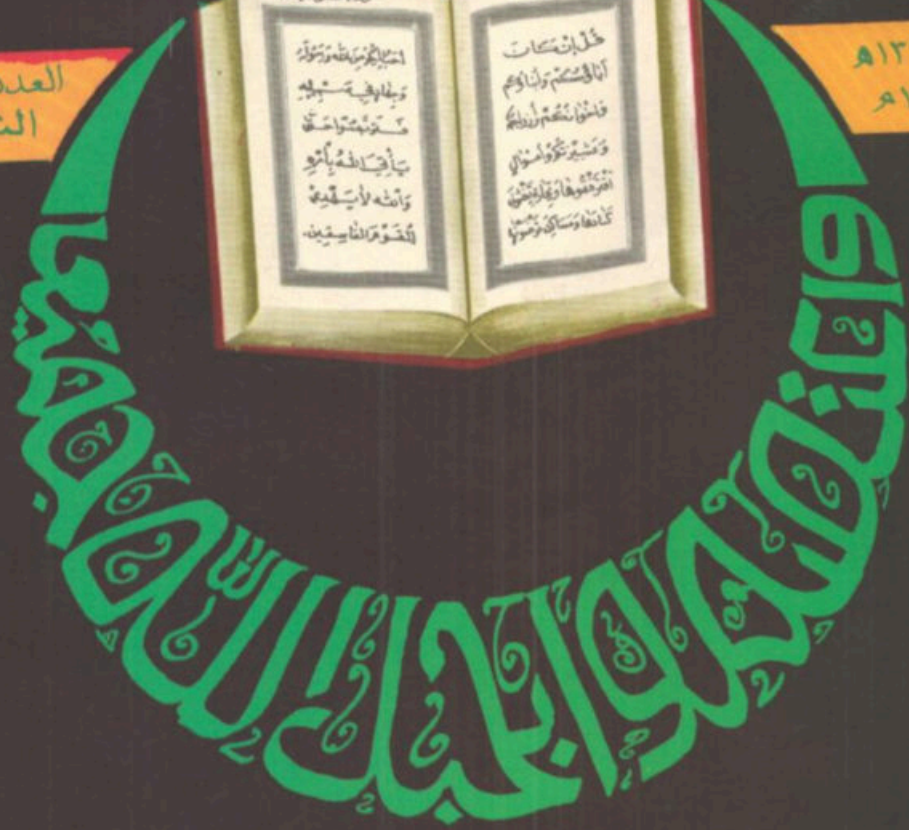 قل إن كان
آباؤكم وأبناؤكم
وإخوانكم وأزواجكم
وعشيرتكم وأموال
اقترفتموها وتجارة تخشون
كسادها ومساكن ترضونها
أحب إليكم من الله ورسوله
وجهاد في سبيله
فتربصوا حتى
يأتي الله بأمره
والله لا يهدي
القوم الفاسقين
العدد
واعتصموا بحبل الله جميعا